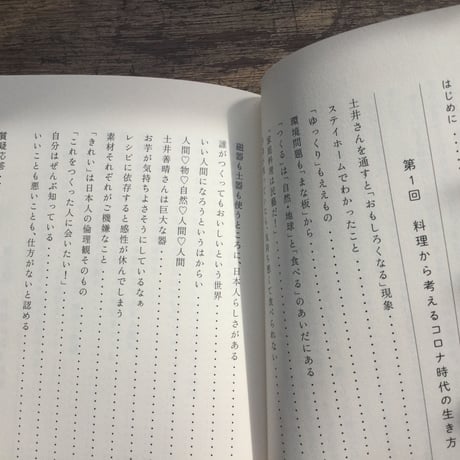 はじめに
第1回 料理から考えるコロナ時代の生き方
土井さんを通すと「おもしろくなる」現象
ステイホームでわかったこと
「ゆっくり」もええもの
環境問題も「まな板」から
「つくる」は「自然・地球」と「食べる」のあいだにある
家庭料理は民藝だ！
食べられない
磁器も土器も使うところに、日本人らしさがある
誰がつくってもおいしいという世界
いい人間になろうというはからい
人間♡物♡自然♡人間♡人間
土井善晴さんは巨大な器
お芋が気持ちよさそうにしているなぁ
レシピに依存すると感性が休んでしまう
素材それぞれがご機嫌なこと
「きれい」は日本人の倫理観そのもの
「これをつくった人に会いたい！」
自分はぜんぶ知っている
いいことも悪いことも、仕方がないと認める
質疑応答